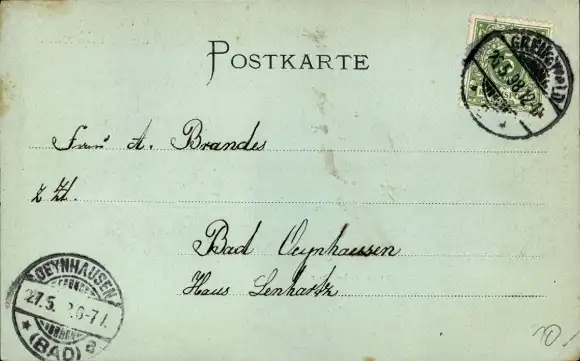 POSTKARTE
GREIFSWALD
98 12
Frau A. Brandes
z. Zt.
Bad Oeynhausen
Haus Lenhartz
OEYNHAUSEN
27.5. 6-7
(BAD) a
10